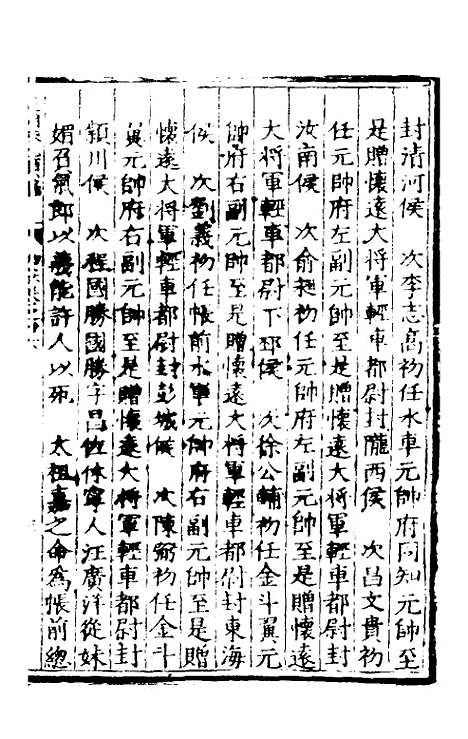 封清河侯　次李志高初任水軍元帥府同知元帥至
是贈懷遠大將軍輕車都尉封隴西侯　次昌文貴初
任元帥府左副元帥至是贈懷遠大將軍輕車都尉封
汝南侯　次俞昶初任元帥府左副元帥至是贈懷遠
大將軍輕車都尉下邳侯　次徐公輔初任金斗翼元
帥府右副元帥至是贈懷遠大將軍輕車都尉封東海
侯　次劉義初任帳前水軍元帥府右副元帥至是贈
懷遠大將軍輕車都尉封彭城侯　次陳弼初任金斗
翼元帥府右副元帥至是贈懷遠大將軍輕車都尉封
潁川侯　次程國勝國勝字昌休寧人汪廣洋從妹
婿召氣郎以義能許人以死　太祖嘉之命為帳前總